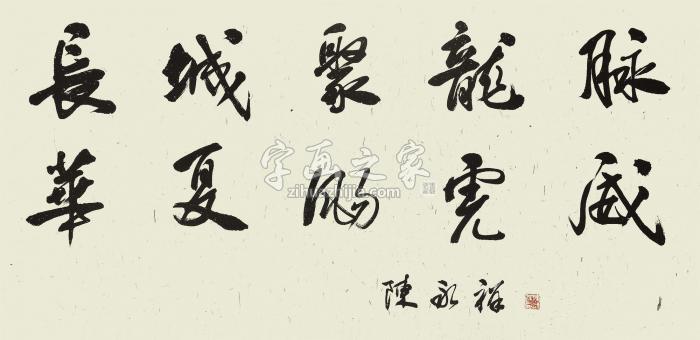 長城聚龍脉
華夏颺虎威
陳永祥
字画之家
zihuazhijia.com